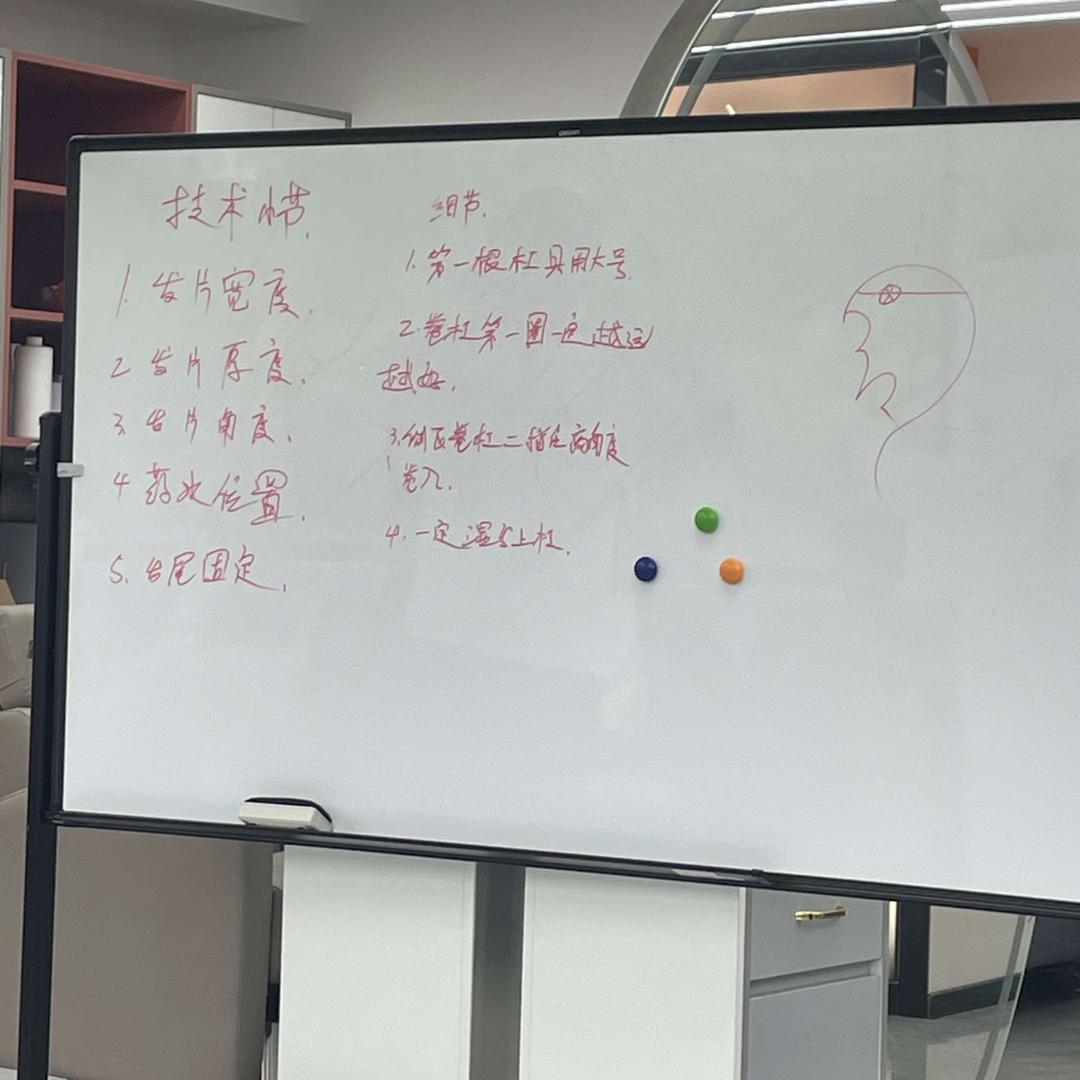 技术小节.
1. 发片宽度.
2 发片厚度.
3 发片角度.
4 药水位置.
5. 发尾固定.
细节.
1. 第一根杠具用大号.
2 卷杠第一圈一定越远
越好.
3. 侧区卷杠二指定高角度
卷入.
4. 一定湿发上杠.
deli